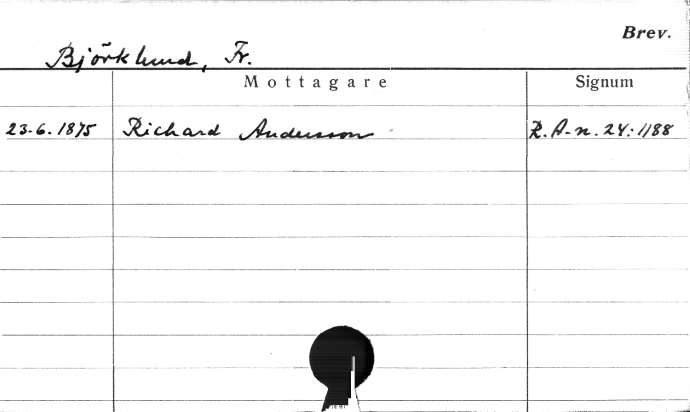 Brev.
Björklund, Fr.
Mottagare Signum
23-6.1875 Richard Andersson R.A-n.24:1188